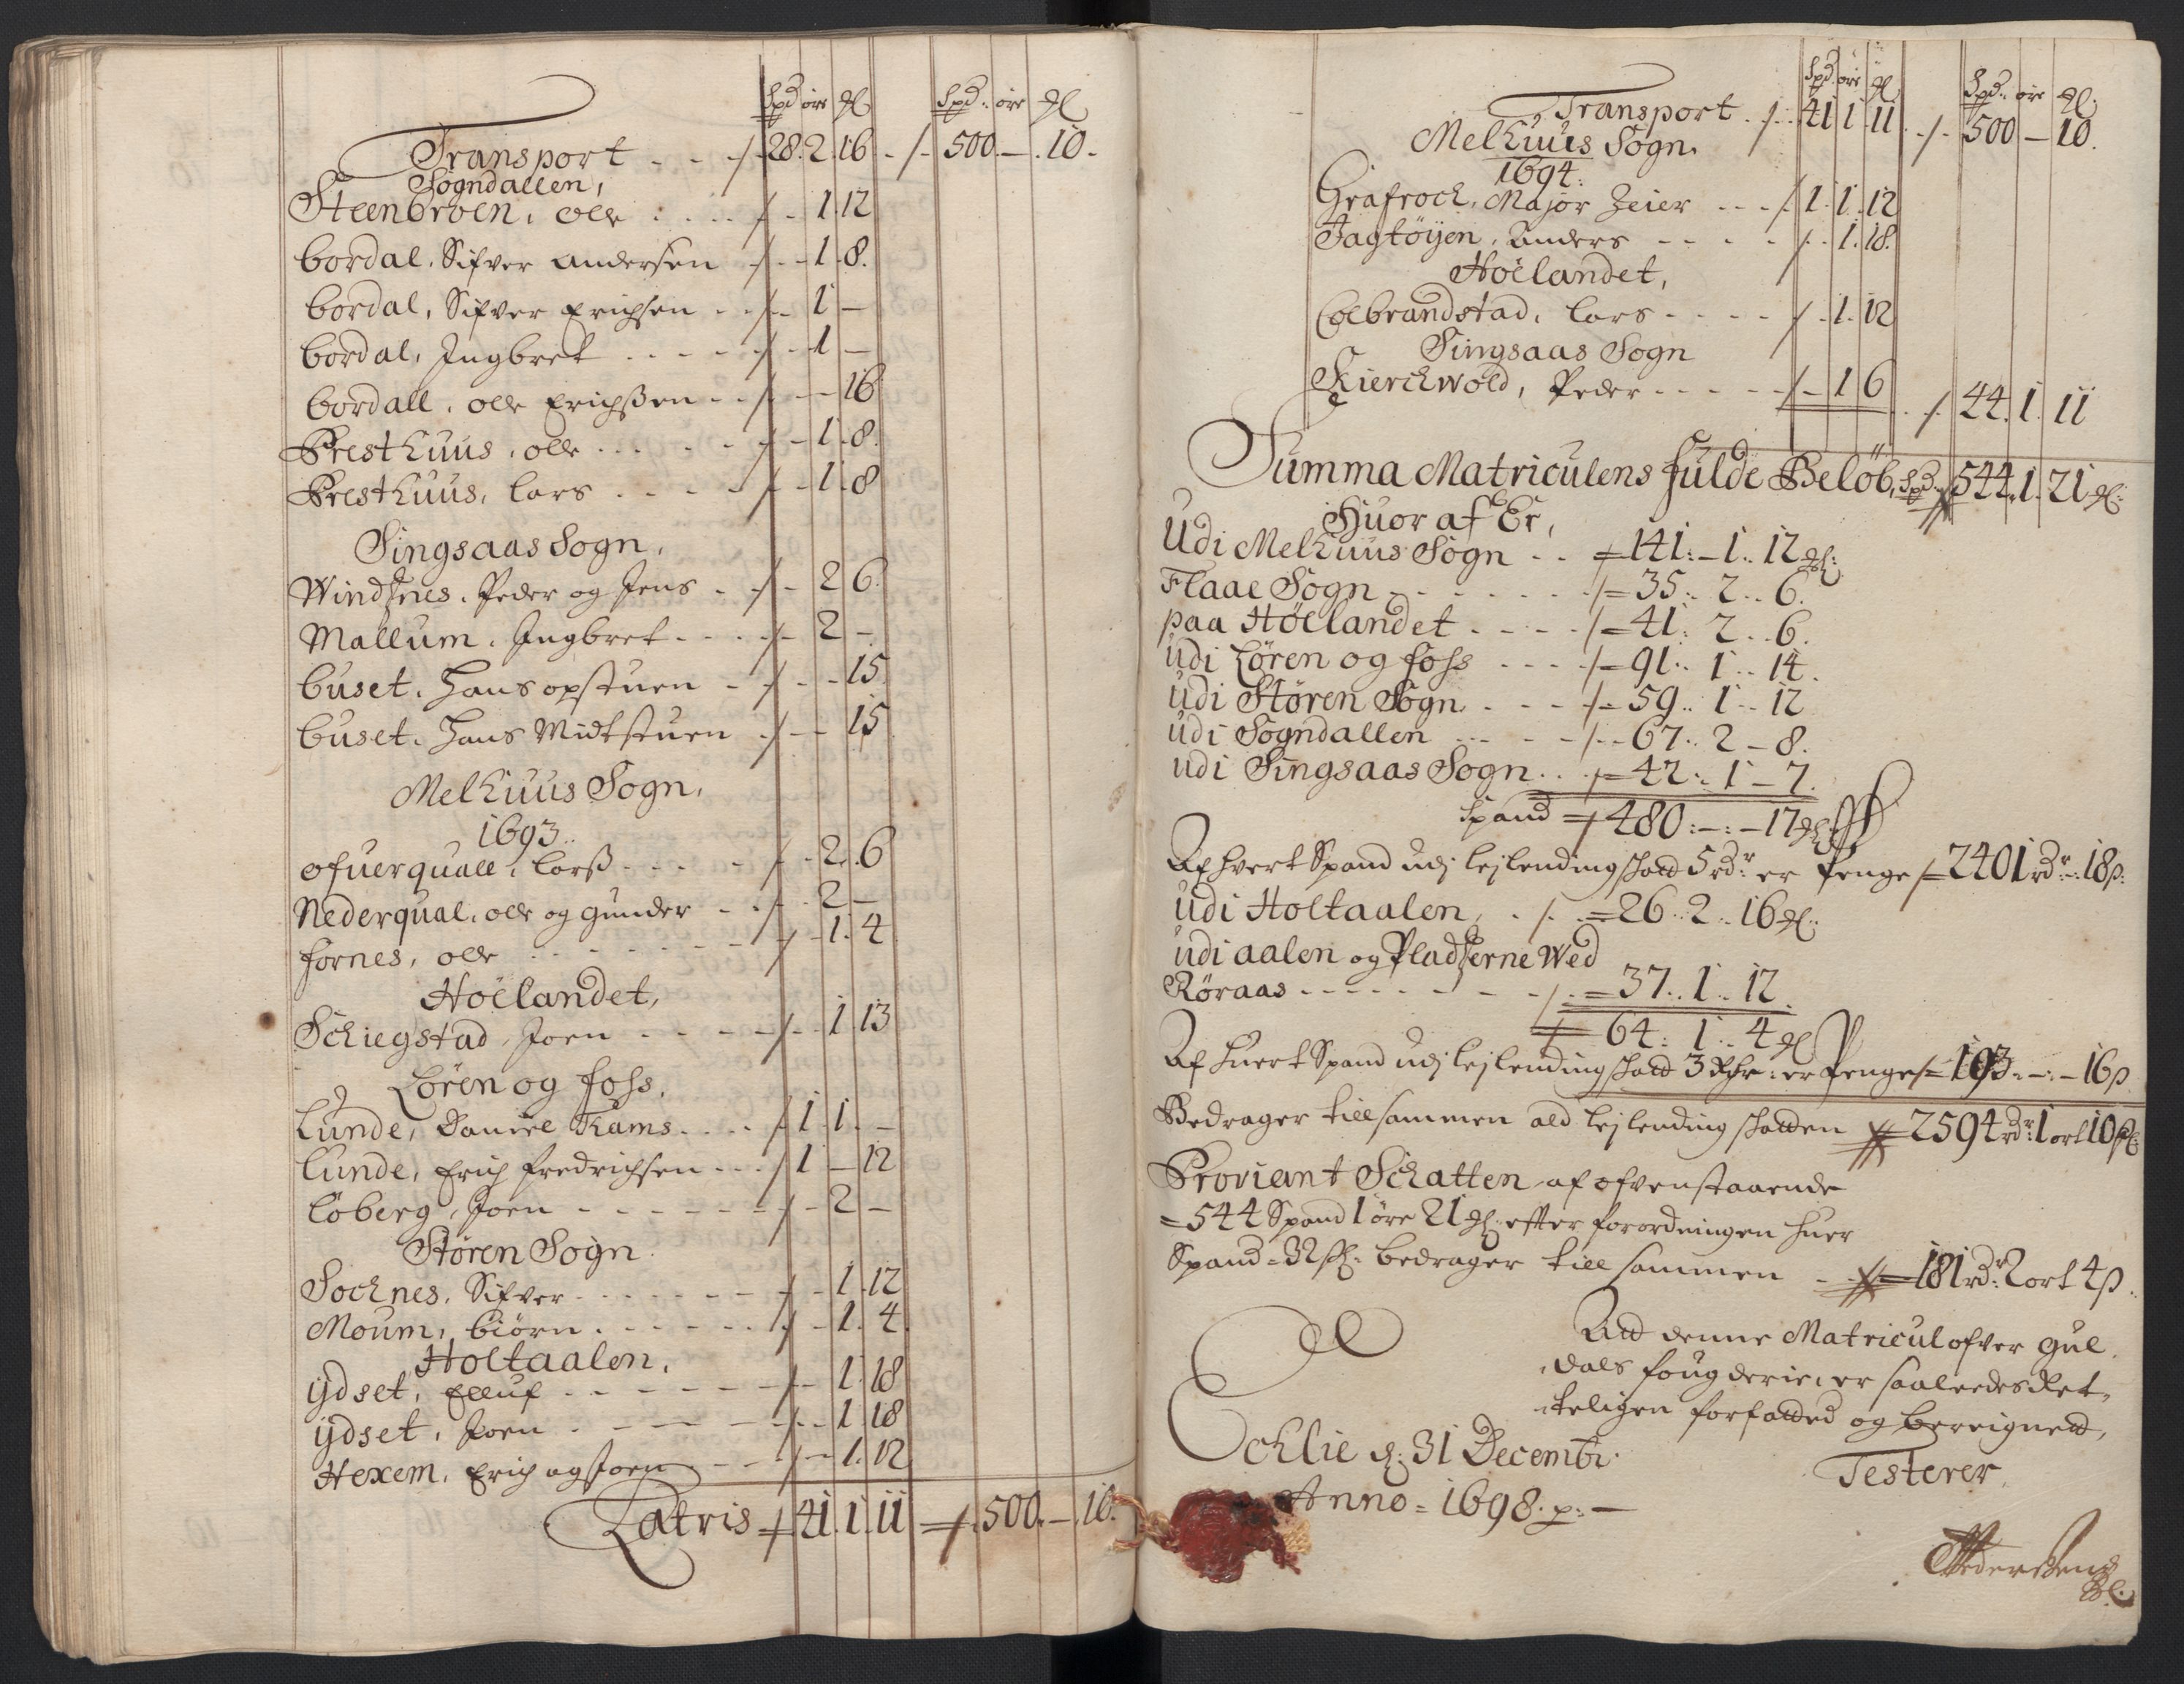 Spd öre Ml Spd: öre Ml
Transport - - -/- 28. 2. 16 - /- 500. — . 10 -
Sogndallen,
Steenbroen, Olle . . . . /- - 1. 12
bordal. Sifver Andersen -/- - 1. 8.
bordal, Sifver Erichsen - -/- - 1 —
bordal, Ingbret . . . . . /- - 1 —
bordall, Olle Erichßen - - /- - — 16
Presthuus, Olle . . . . - /- - 1. 8.
Presthuus, Lars . . . . - /- - 1. 8
Singsaas Sogn,
Windsnes. Peder og Jens - -/- - 2 6.
Mallum. Ingbret - - - -/- - 2 —
buset. Hans opstuen - -/- - - 15.
buset. Hans Midtstuen -/- - 15
Melhuus Sogn,
1693..
ofuerquall, Larß - - - - - /- - 2. 6
Nederqual, Olle og Gunder - -/- - 2 —
fornes, Olle . . - - - - - /- - 1. 4
Höelandet,
Schiegstad Joen - - - - -/- - 1 13
Lören og foss,
Lunde, Daniel Kams - . . . /1. 1. —
Lunde, Erich fredrichsen - - - /1 — 12
Löberg, Joen - - - - - - -/- - 2 —
Stören Sogn.
Sochnes, Sifver - - - - - - -/- - 1. 12
Moum, Biörn . - - - - - . /- - 1. 4
Holtaalen,
ijdset, Elluf - - - - - - - -/- - 1. 18
ijdset, Joen - - - - - - -/- - 1 18
Hexem, Erich og Joen - - -/- - 1. 12
Latris /= 41. 1. 11 =/= . 500. — . 10.
Spd. öre Ml Spd: öre Ml.
Transport . /- . 41 1. 11 . /- 500 — 10.
Melhuus Sogn.
1694:
Grafroch, Major Zeier - - -/ 1. 1. 12
Jagtöijen, Anders - - - - - /- - 1. 18.
Höelandet,
Colbrandstad, Lars - - - - /- . 1. 12
Singsaas Sogn
Kierchwold, Peder - - - - - /- - 1 6 . /- 44. 1. 11
Summa Matriculens fulde Beløb, Spd: 544. 1. 21 Ml:
Huor af Er,
Udi Melhuus Sogn - - /= 141: - 1 .. 12 Ml:
Flaae Sogn - - - - - - - /= 35 .. 2 .. 6.
paa Höelandet . - - - /= 41: 2 . . 6.
udi Lören og foss - - - - /= 91 .. 1 .. 14.
udi Stören Sogn - - - /= 59 .. 1 .. 12
udi Sogndallen - - - - /= - 67 .. 2 - 8.
udi Singsaas Sogn . . /= 42 .. 1 - 7.
Spand /= 480: —: — 17 Ml:
Af hvert Spand udj Lejlending shatt 5 rdr: er Penge /= 2401 rdr — 18 ß:
udi Holtaalen, . /. . = 26 .. 2 .. 16 Ml:
udi aalen og Pladserne Wed
Röraas - - - - - - - - /. = 37 .. 1 .. 12
/= 64: 1 .. 4 Ml
Af huert Spand udj Lejlending shatt 3 Rdr: er Penge /= 193 - : - 16 ß
Bedrager tillsammen ald Lejlending shatten = 2594 rdr: 1 ort 10 ß:
Proviant Schatten af ofvenstaaende
= 544 Spand 1 öre 21 Ml: efter forordningen huer
Spand = 32 ß: bedrager till sammen - /= 181 rdr 2 ort 4 ß.
Att denne Matricul ofver Gul-
dals fougderie, er saaledes Ret-
teligen forfatted og bereignett,
Testerer,
Echlie d: 31 Decembr:
Anno = 1698. p: —